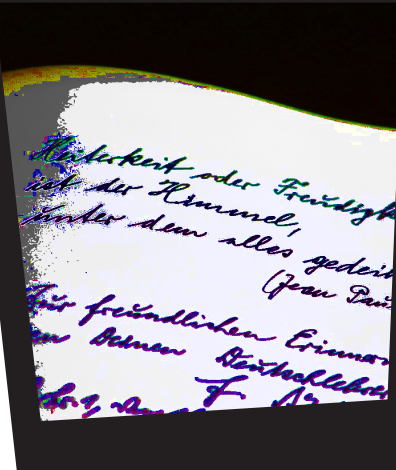 Heiterkeit oder Freudigk
ist der Himmel,
unter dem alles gedeih
(Jean Pau
Zur freundlichen Erinner
an Deinen Deutschlehrer